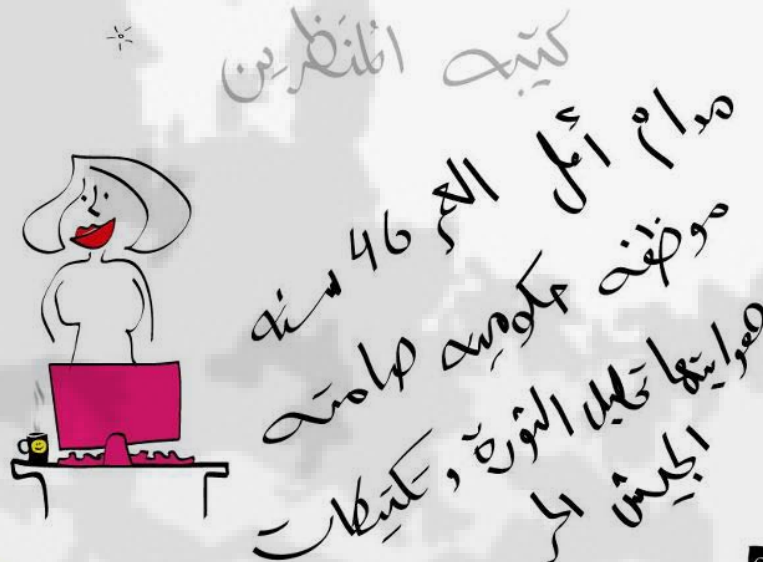 كتيبه المُنَظرين
مدام أمل العمر 46 سنه
موظفه حكوميه صامته
هوايتها تحليل الثورة و تكتيكات
الجيش الحر